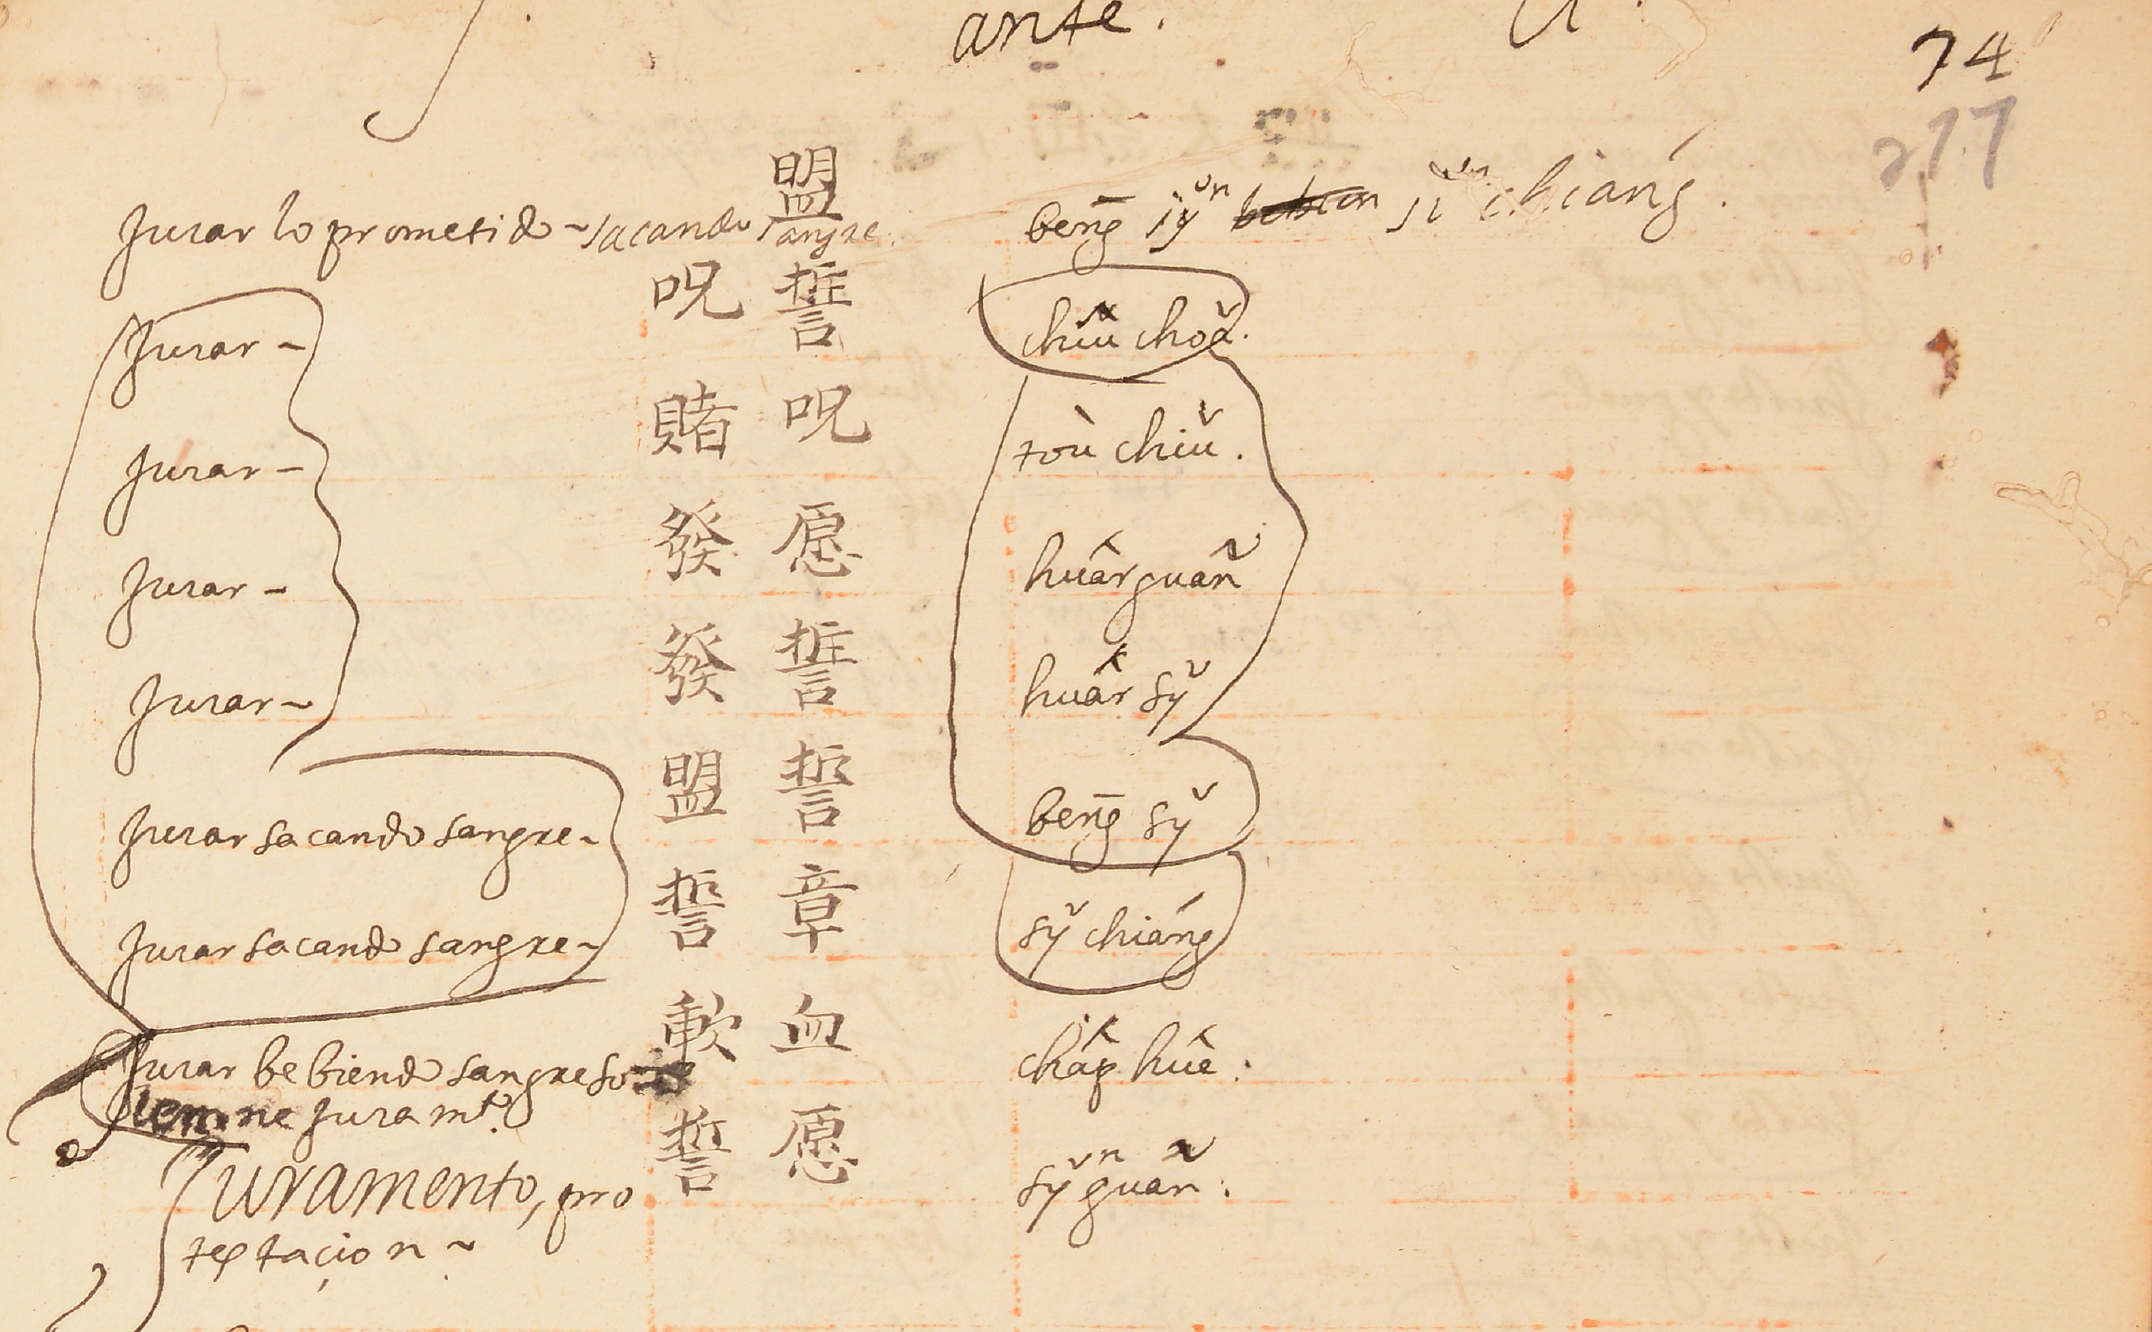 ante.
74
277
Jurar lo prometido ~ sacando sangre. 盟 beng̃ sỹ chiańg.
Jurar – 呪誓 chiŭ choă.
Jurar – 賭呪 toù chiŭ.
Jurar – 發愿 huâr guañ
Jurar ~ 發誓 huâr sy̌
Jurar sacando sangre ~ 盟誓 beng̃ sy̌
Jurar sacando sangre ~ 誓章 sy̌ chiańg
Jurar bebiendo sangre so 軟血 châp huê.
lemne juramto.
Juramento, pro 誓愿 sy̌ guañ.
testacion ~